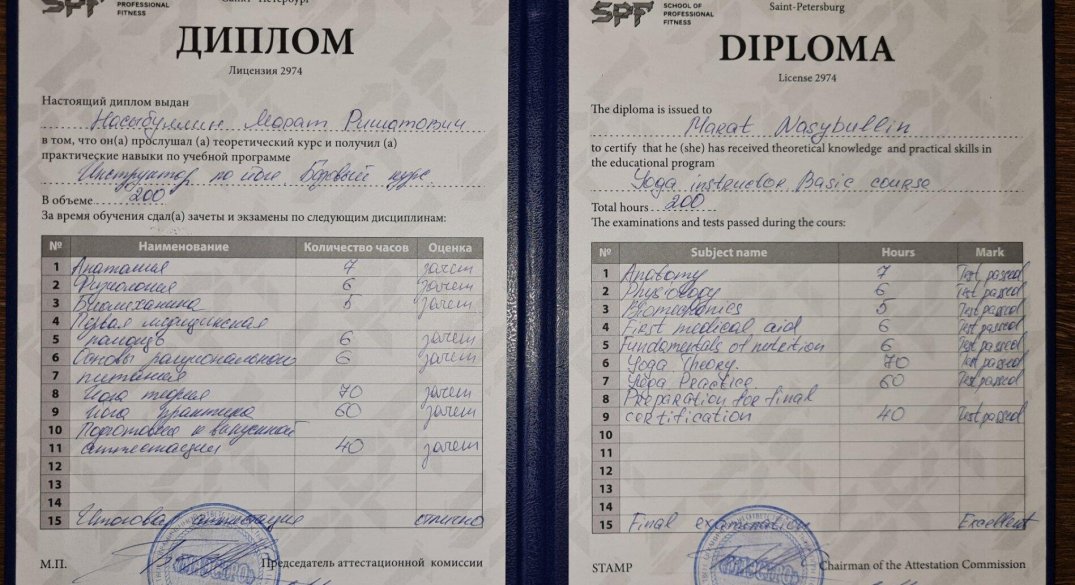 SPF
PROFESSIONAL
FITNESS
Санкт-Петербург
ДИПЛОМ
Лицензия 2974
Настоящий диплом выдан
Насыбуллин Марат Ришатович
в том, что он(а) прослушал (а) теоретический курс и получил (а)
практические навыки по учебной программе
Инструктор по йоге. Базовый курс
В объеме 200
За время обучения сдал(а) зачеты и экзамены по следующим дисциплинам:
№ Наименование Количество часов Оценка
1 Анатомия 7 зачет
2 Физиология 6 зачет
3 Биомеханика 5 зачет
4 Первая медицинская
5 помощь 6 зачет
6 Основы рационального 6 зачет
7 питания
8 Йога теория 70 зачет
9 Йога практика 60 зачет
10 Подготовка к выпускной
11 аттестации 40 зачет
12
13
14
15 Итоговая аттестация отлично
М.П. Председатель аттестационной комиссии
SPF
SCHOOL OF
PROFESSIONAL
FITNESS
Saint-Petersburg
DIPLOMA
License 2974
The diploma is issued to
Marat Nasybullin
to certify that he (she) has received theoretical knowledge and practical skills in
the educational program
Yoga instructor Basic course
Total hours 200
The examinations and tests passed during the cours:
№ Subject name Hours Mark
1 Anatomy 7 Test passed
2 Physiology 6 Test passed
3 Biomechanics 5 Test passed
4 First medical aid 6 Test passed
5 Fundamentals of nutrition 6 Test passed
6 Yoga Theory. 70 Test passed
7 Yoga Practice 60 Test passed
8 Preparation for final
9 certification 40 Test passed
10
11
12
13
14
15 Final examination Excellent
STAMP Chairman of the Attestation Commission